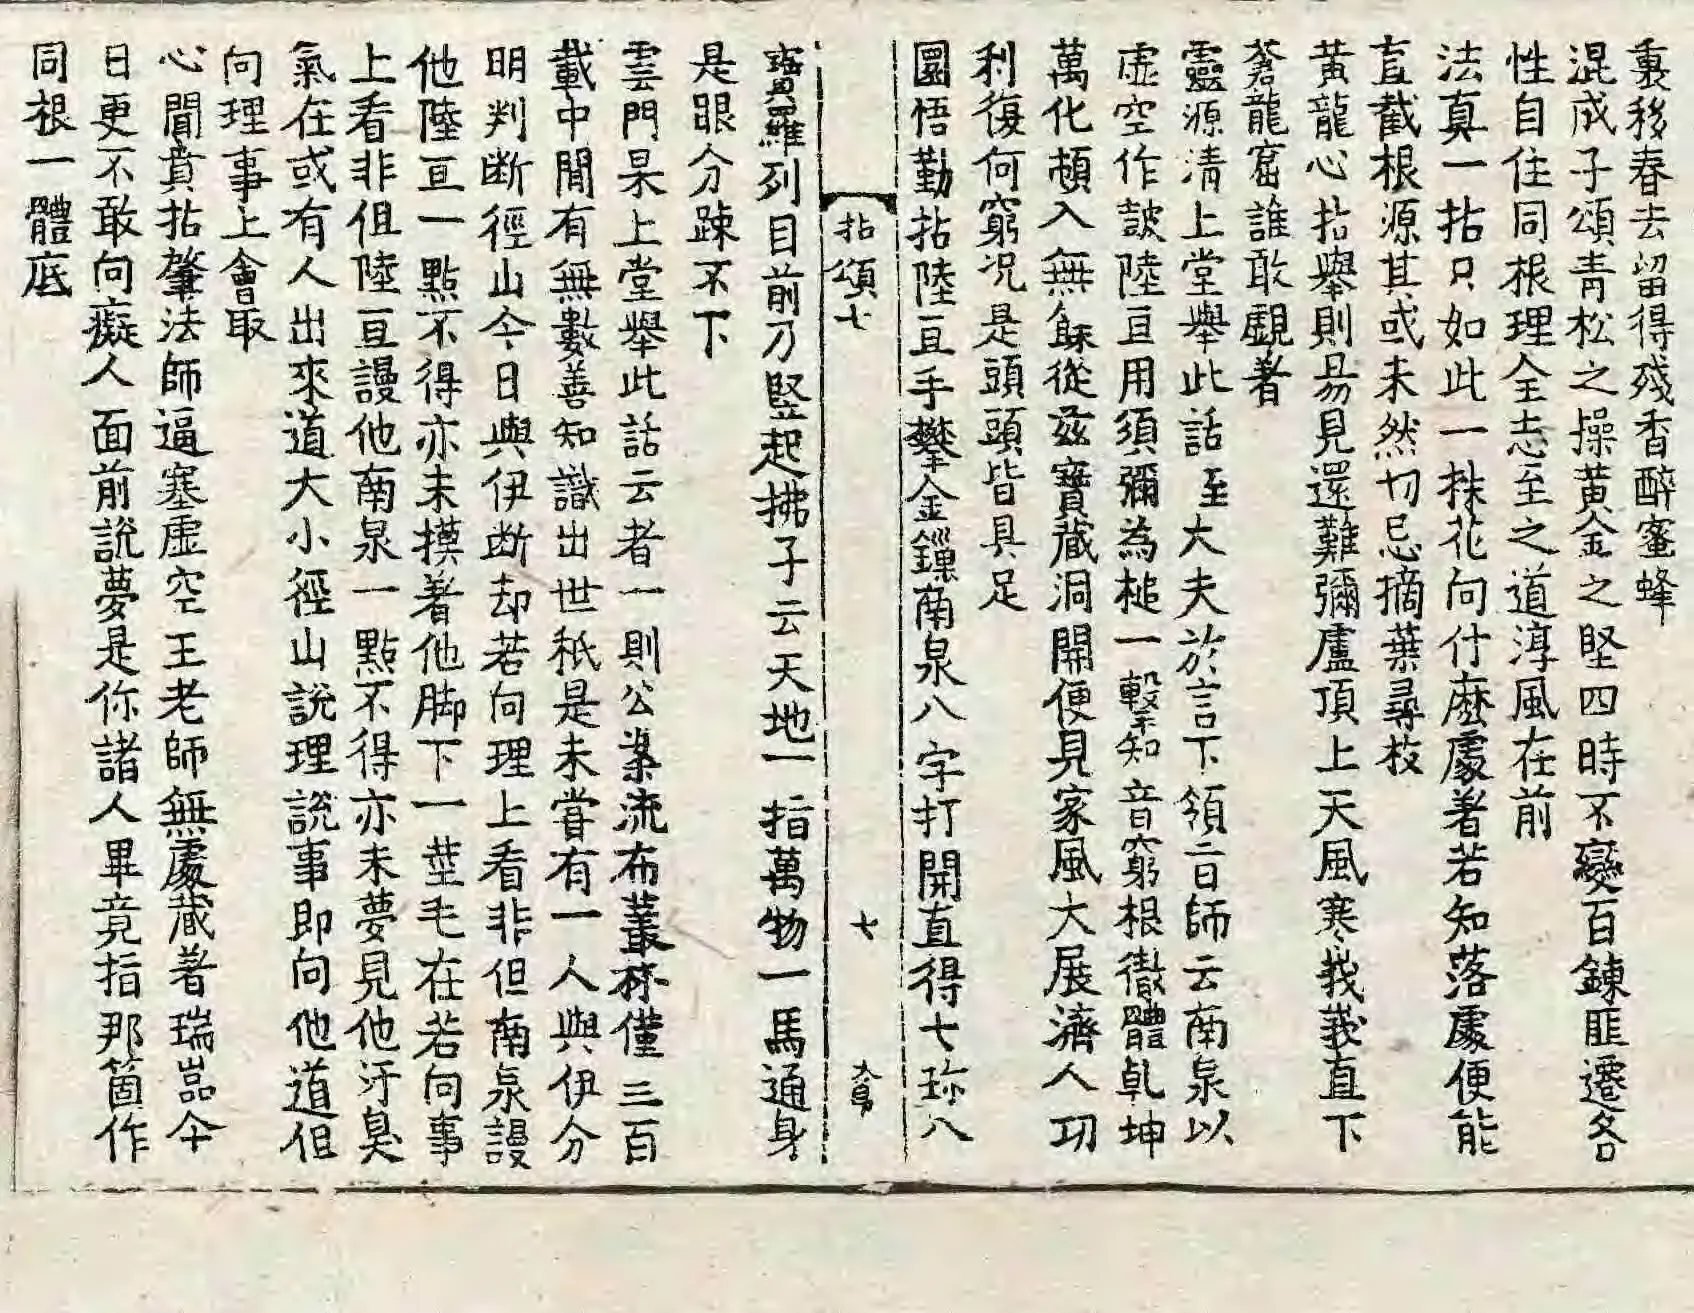 裏移春去留得殘香醉蜜蜂
混成子頌青松之操黃金之堅四時不變百鍊匪遷各
性自住同根理全志至之道淳風在前
法真一拈只如此一株花向什麽處著若知落處便能
直截根源其或未然切忌摘葉尋枝
黃龍心拈舉則易見還難彌盧頂上天風寒莪莪直下
蒼龍窟誰敢覷著
靈源清上堂舉此話至大夫於言下領旨師云南泉以
虛空作皷陸亘用須彌為槌一擊知音窮根徹體乹坤
萬化頓入無餘從茲寶藏洞開便見家風大展濟人功
利復何窮况是頭頭皆具足
圜悟勤拈陸亘手攀金鏁南泉八字打開直得七珎八
拈頌七 七
寶羅列目前乃竪起拂子云天地一指萬物一馬通身
是眼分踈不下
雲門杲上堂舉此話云者一則公案流布叢林僅三百
載中間有無數善知識出世秖是未甞有一人與伊分
明判断徑山今日與伊断却若向理上看非但南泉謾
他陸亘一點不得亦未摸著他脚下一莖毛在若向事
上看非但陸亘謾他南泉一點不得亦未夢見他汙臭
氣在或有人出來道大小徑山說理說事即向他道但
向理事上會取
心聞賁拈肇法師逼塞虛空王老師無處藏著瑞嵓今
日更不敢向癡人面前說夢是你諸人畢竟指那箇作
同根一體底